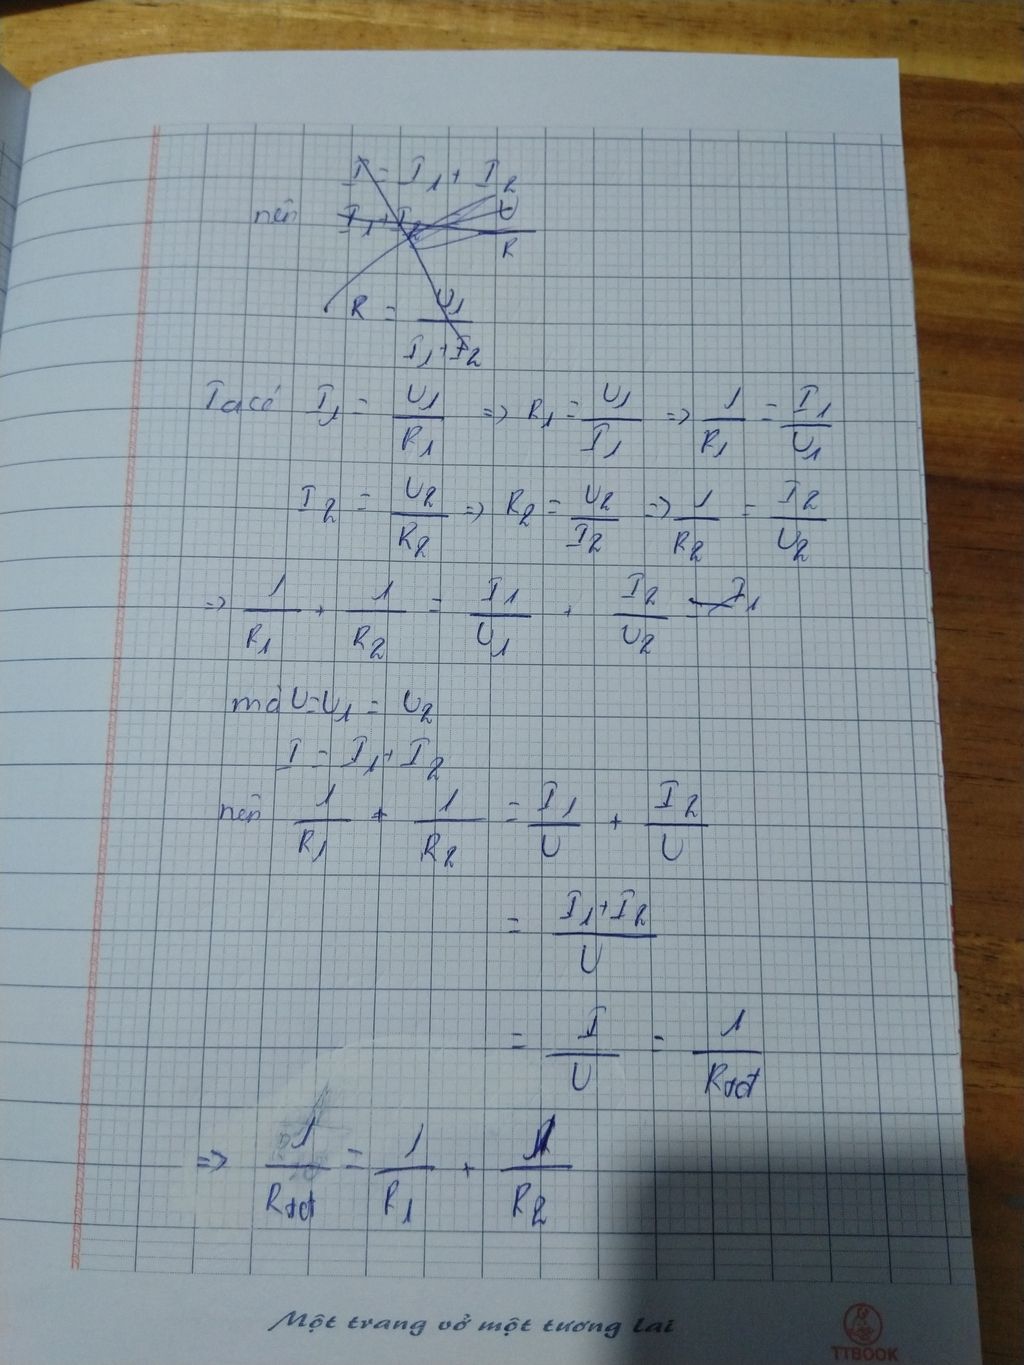 I = I1 + I2
nên I1 + I2 = U/R
R = U1/(I1+I2)
Ta có I1 = U1/R1 => R1 = U1/I1 => 1/R1 = I1/U1
I2 = U2/R2 => R2 = U2/I2 => 1/R2 = I2/U2
=> 1/R1 + 1/R2 = I1/U1 + I2/U2 = I1
mà U=U1 = U2
I = I1 + I2
nên 1/R1 + 1/R2 = I1/U + I2/U
= (I1+I2)/U
= I/U = 1/Rtđ
=> 1/Rtđ = 1/R1 + 1/R2
Một trang vở một tương lai
TTBOOK